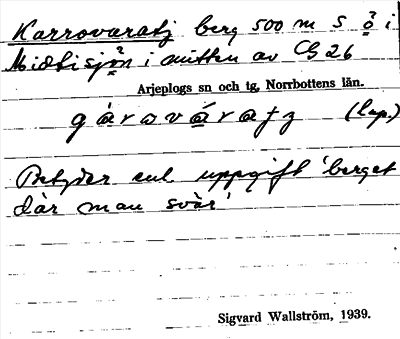 Karrovaratj berg 500 m S ö i
Midtisjön i mitten av G 26
Arjeplogs sn och tg, Norrbottens län.
gàravāratj (lap.)
Betyder enl. uppgift 'berget
där man svär'
Sigvard Wallström, 1939.